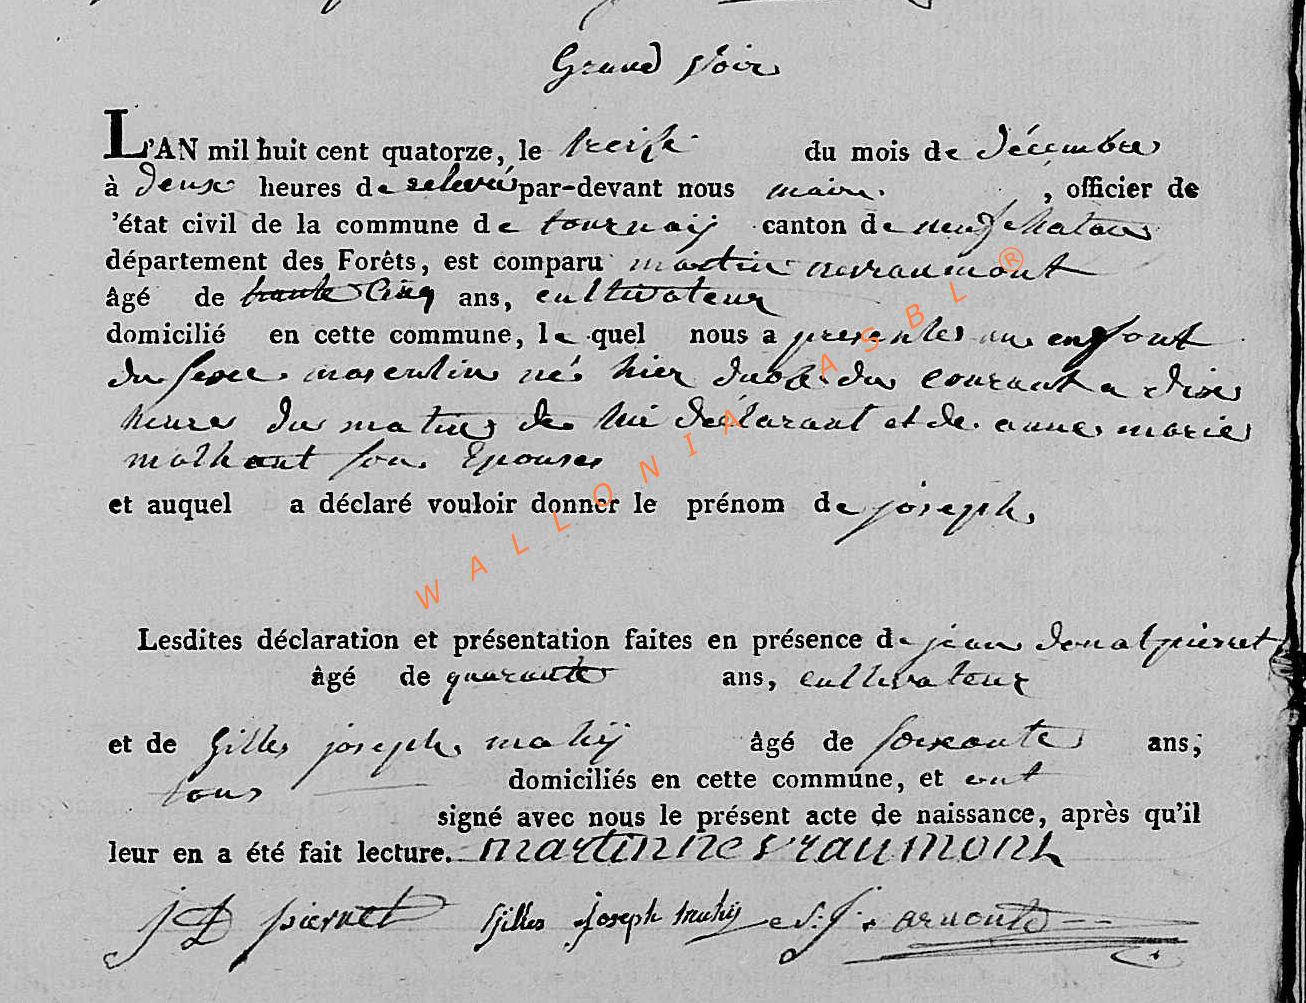 Grand Voir
L'AN mil huit cent quatorze, le treise du mois de décembre
à deux heures de relevée par-devant nous maire , officier de
'état civil de la commune de tournaij canton de neufchateau
département des Forêts, est comparu martin nevraumont
âgé de trante Cinq ans, cultivateur
domicilié en cette commune, le quel nous a presentes un enfant
du sexe masculin né hier du courant a dix
heures du matin de lui déclarant et de anne marie
molhant son Epouse
et auquel a déclaré vouloir donner le prénom de joseph,
Lesdites déclaration et présentation faites en présence de jean donat pierret
âgé de quarante ans, cultivateur
et de Gilles joseph mahij âgé de soixante ans,
tous domiciliés en cette commune, et ont
signé avec nous le présent acte de naissance, après qu'il
leur en a été fait lecture. martin nevraumont
JD pierret Gilles joseph mahij S: J: arnould
WALLONIA ASBL ®